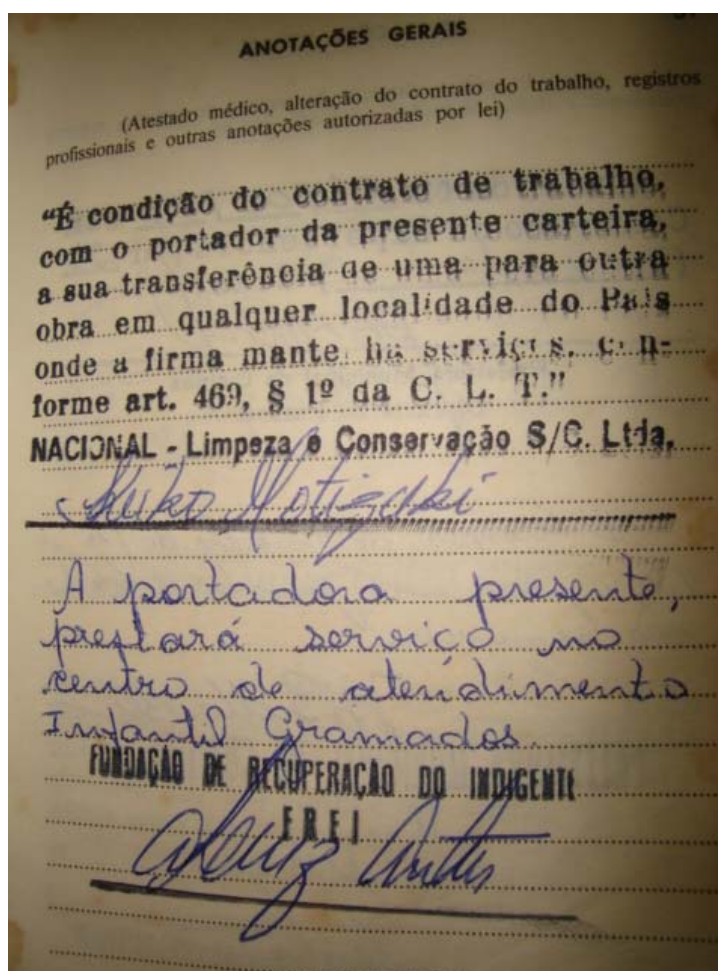 ANOTAÇÕES GERAIS
(Atestado médico, alteração do contrato do trabalho, registros
profissionais e outras anotações autorizadas por lei)
"É condição do contrato de trabalho,
com o portador da presente carteira,
a sua transferência de uma para outra
obra em qualquer localidade do País
onde a firma mante ha serviços, con-
forme art. 469, § 1º da C. L. T."
NACIONAL - Limpeza e Conservação S/C. Ltda.
A portadora presente,
prestará serviço no
centro de atendimento
Infantil Gramados.
FUNDAÇÃO DE RECUPERAÇÃO DO INDIGENTE